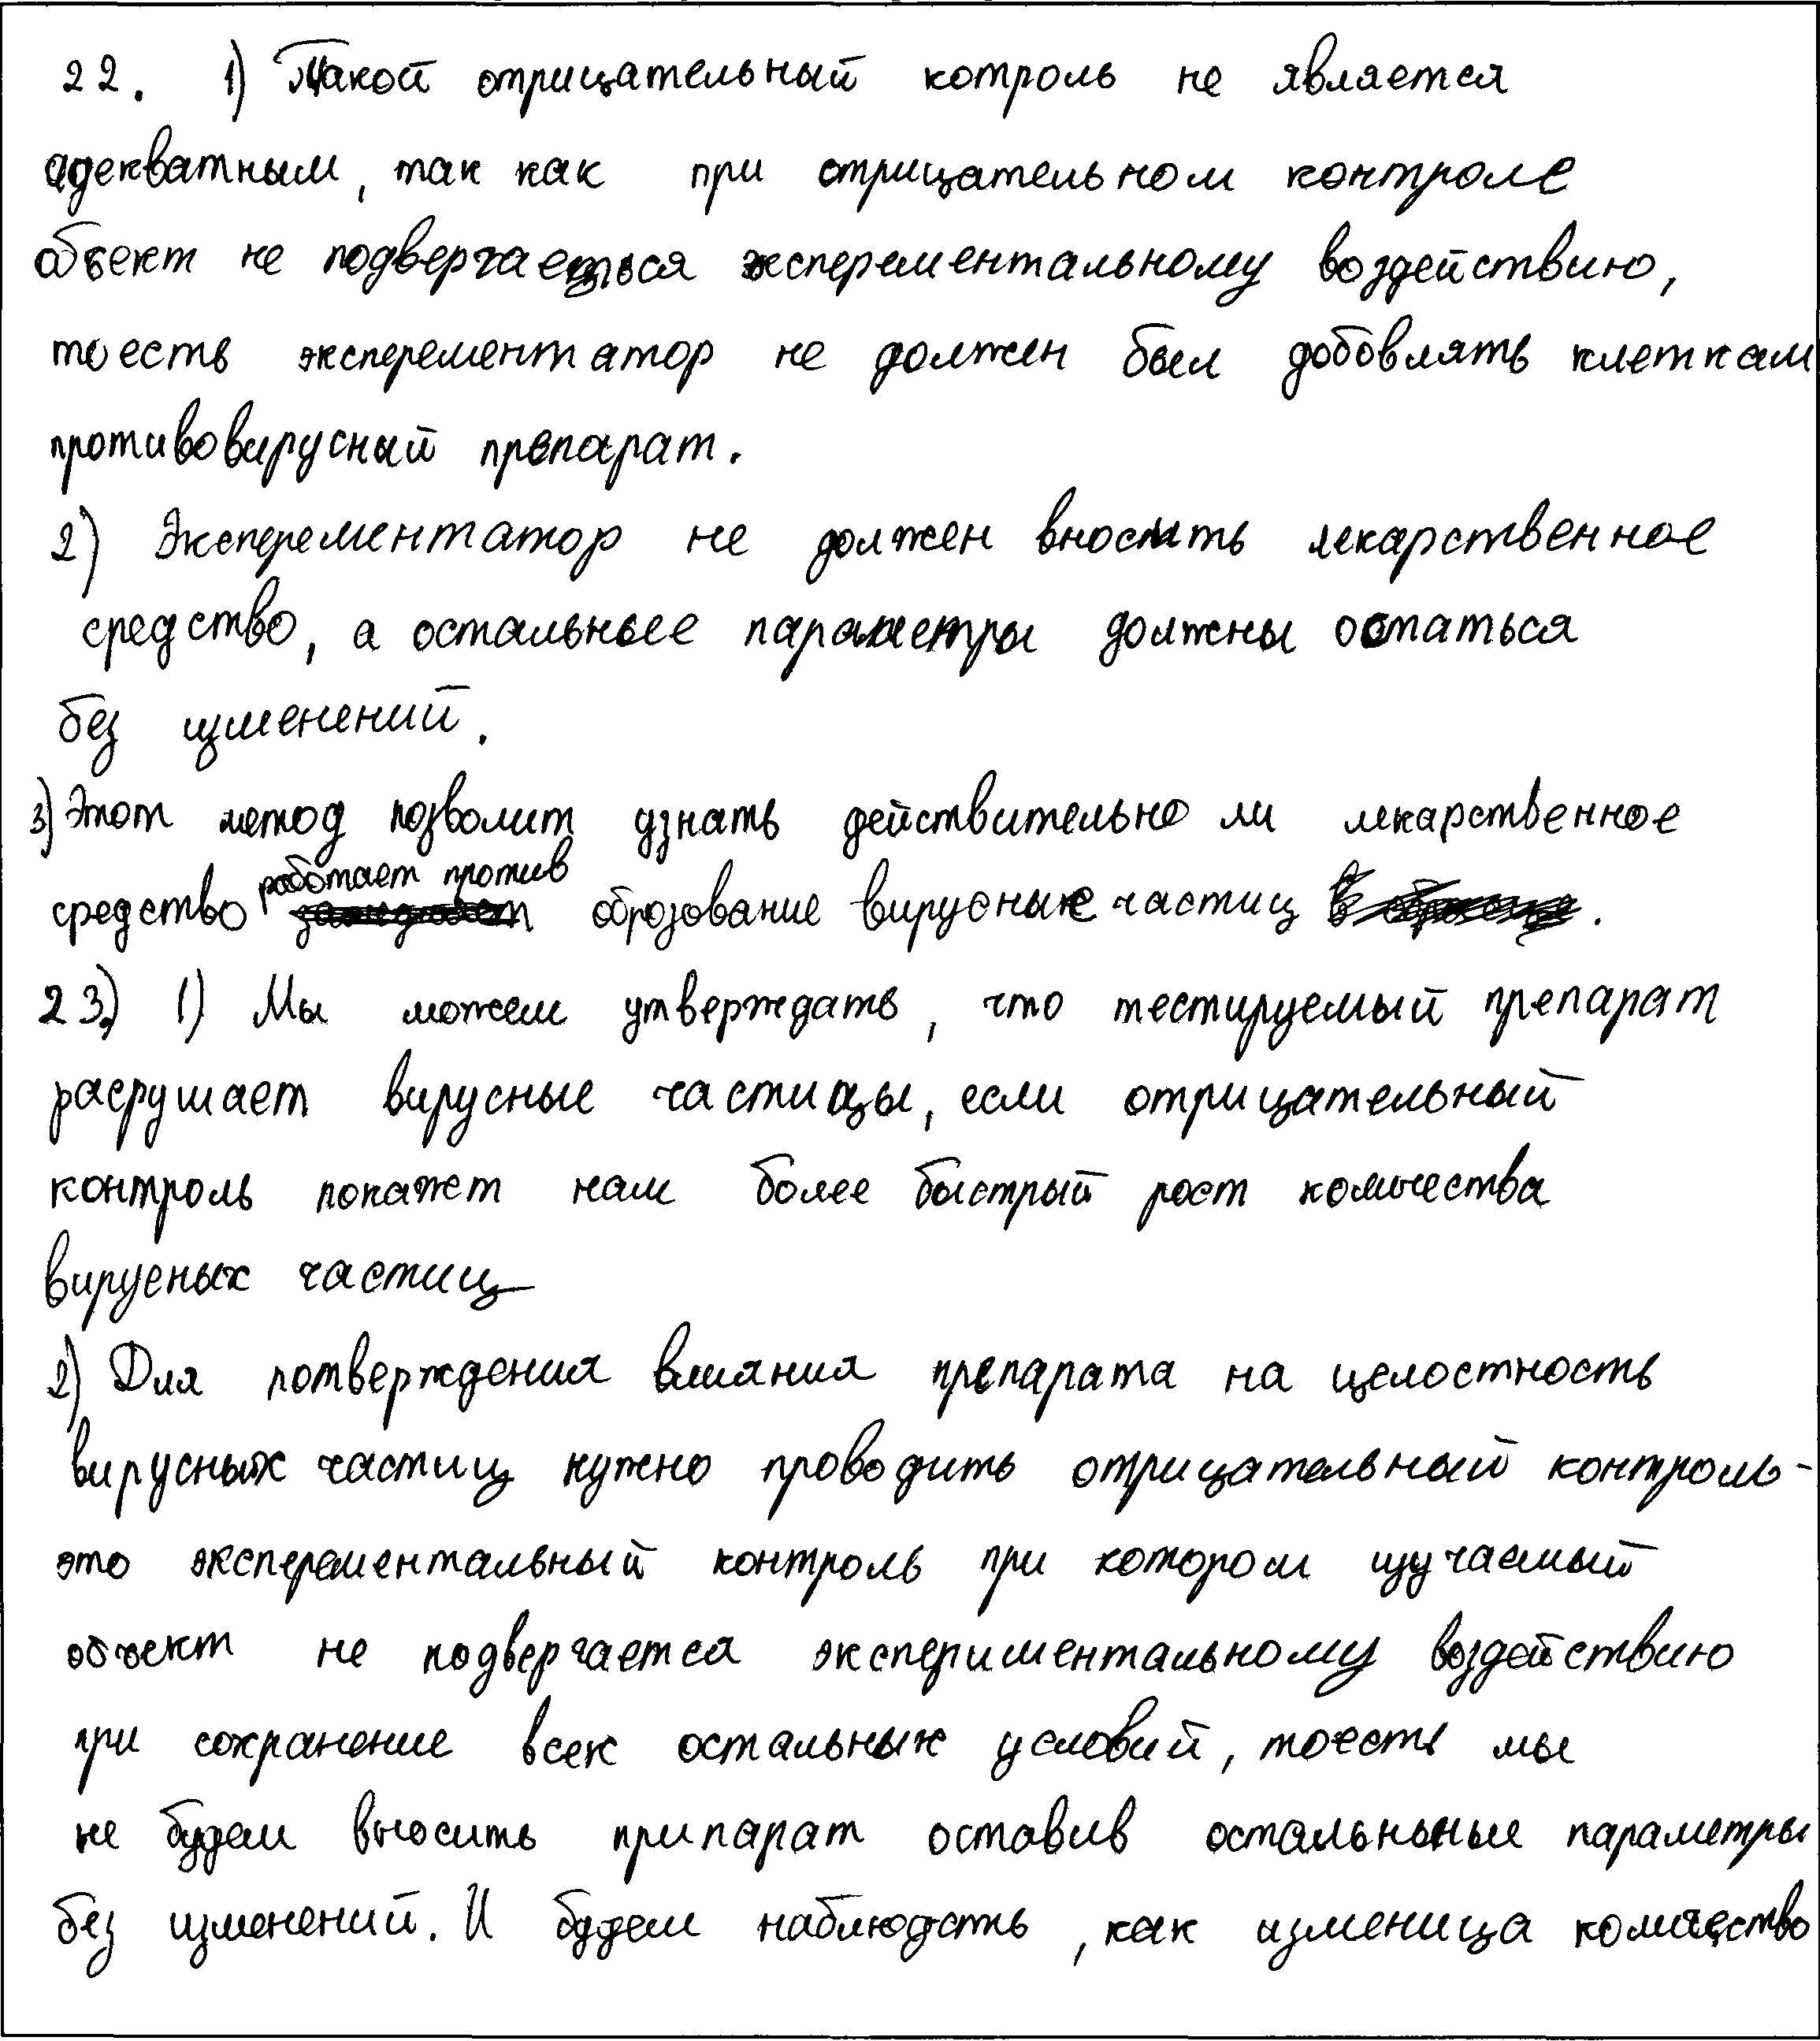 22. 1) Такой отрицательный котроль не является
адекватным, так как при отрицательном контроле
объект не подвергаеться эксперементальному воздействию,
тоесть эксперементатор не должен был добовлять клеткам
противовирусный препарат.
2) Эксперементатор не должен вносить лекарственное
средство, а остальные параметры должны остаться
без изменений.
3) Этот метод позволит узнать действительно ли лекарственное
средство работает против оброзование вирусных частиц.
23) 1) Мы можем утверждать, что тестируемый препарат
расрушает вирусные частицы, если отрицательный
контроль покажет нам более быстрый рост количества
вирусных частиц
2) Для потверждения влияния препарата на целостность
вирусных частиц нужно проводить отрицательный контроль -
это эксперементальный контроль при котором изучаемый
объект не подвергается экспериментальному воздействию
при сохранение всех остальных условий, тоесть мы
не будем вносить припарат оставив остальныные параметры
без изменений. И будем наблюдать, как изменица количество